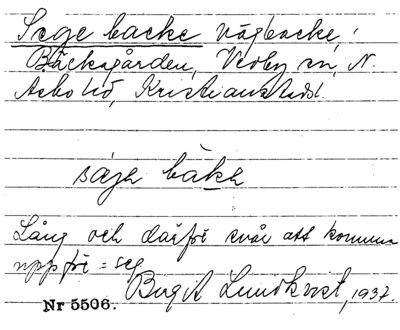 Sege backe vägbacke,
Bäckagården, Vedby sn, N.
Åsbo hd, Kristianstads l.
sägə bakə
Lång och därför svår att komma
uppför = seg
Birgit Lundkvist, 1937.
Nr 5506.